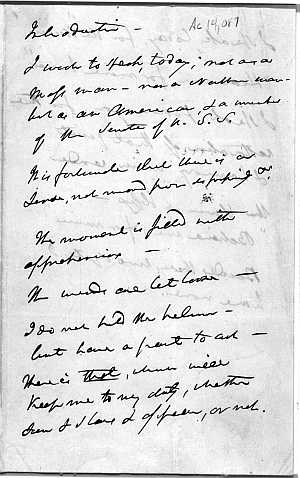 Ac 14,087
Introduction —
I wish to speak, today; not as a
Mass man — nor a Northern man —
but as an American, & a member
of the Senate of U. S. S.
It is fortunate that there is a
Senate, not moved from its propriety &c.
The moment is filled with
apprehension —
The winds are let loose —
I do not hold the helm —
but have a part to act —
there is that, which will
keep me to my duty, whether
Sun & Stars appear, or not.